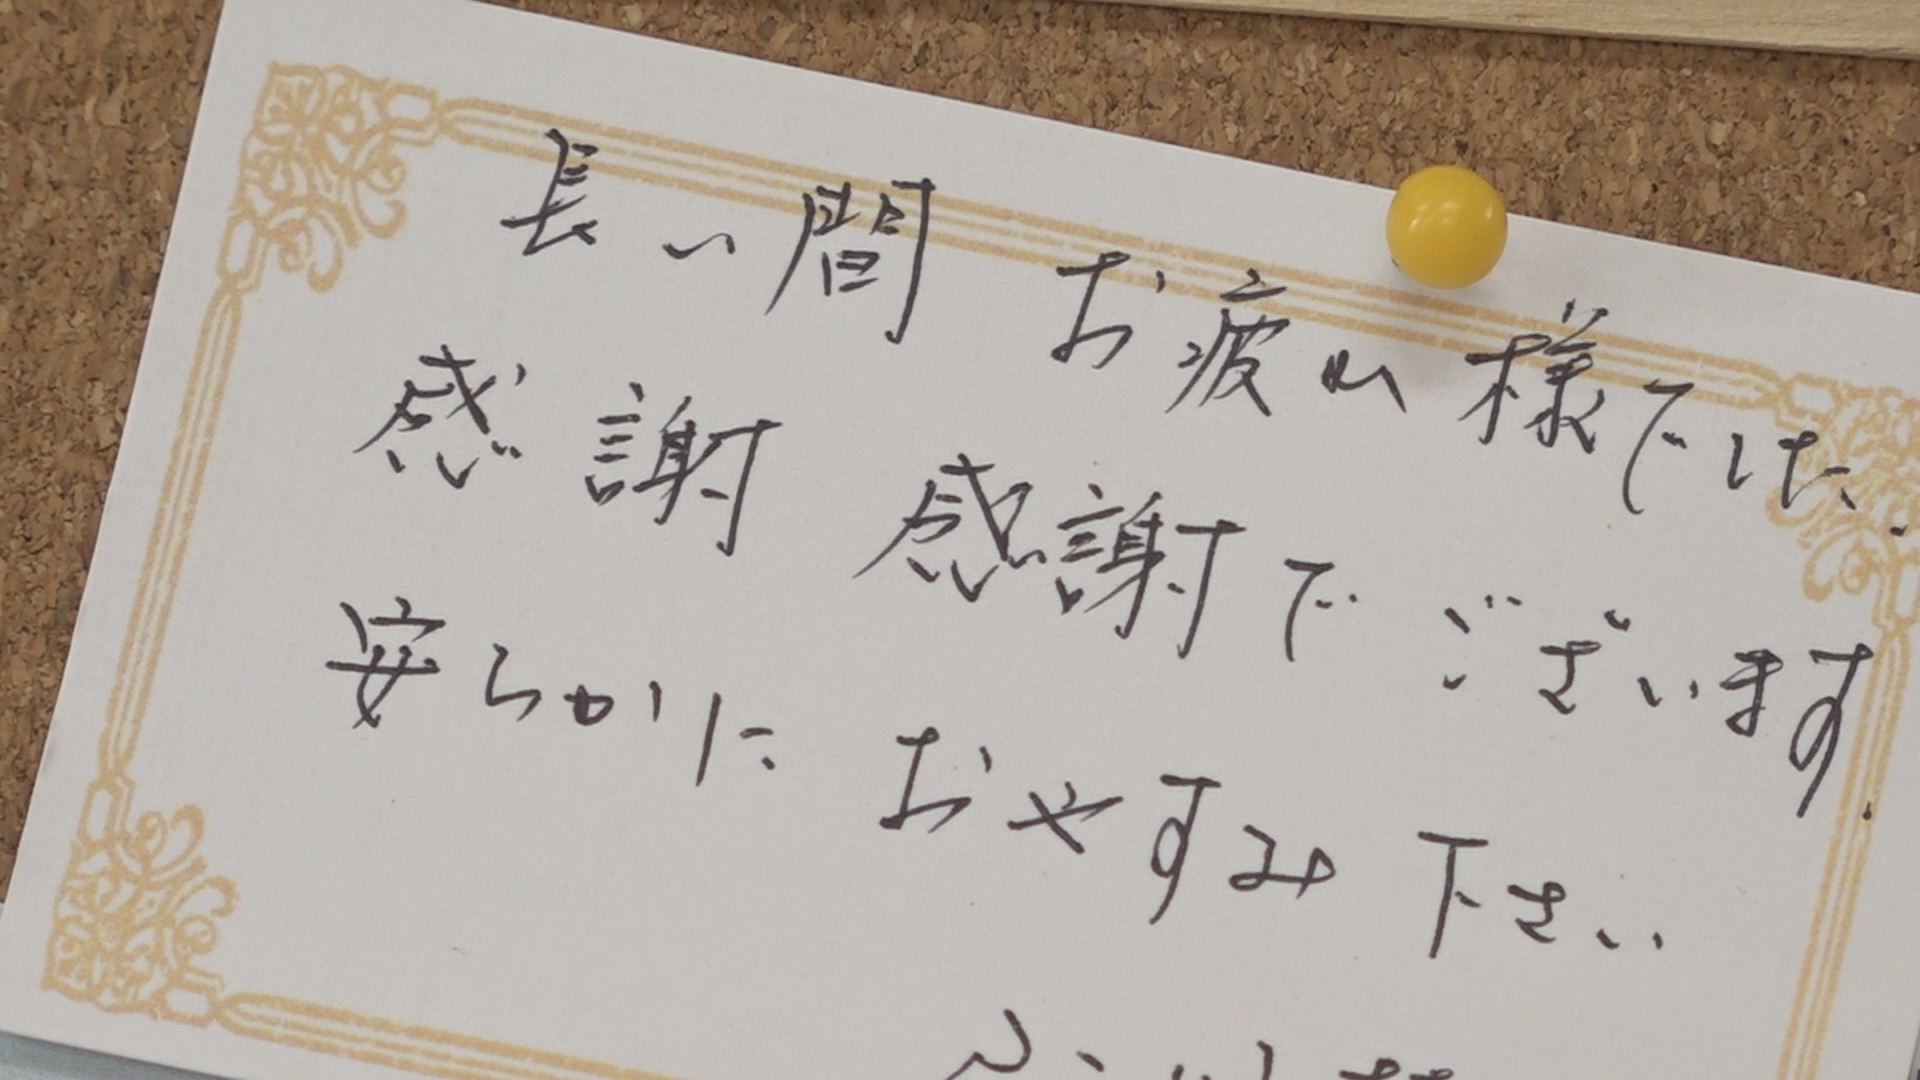 長い間 お疲れ様でした.
感謝 感謝でございます.
安らかに おやすみ下さい